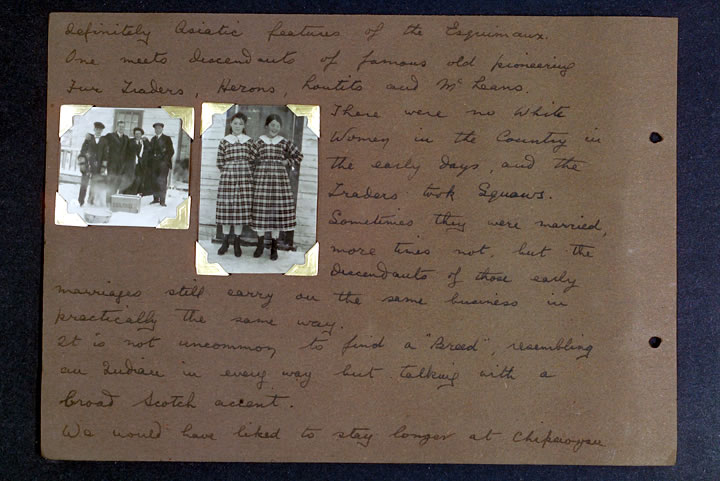 definitely Asiatic features of the Esquimaux.
One meets descendants of famous old pioneering
Fur Traders, Herons, Loutits and McLeans.
There were no White
Women in the Country in
the early days, and the
Traders took Squaws.
Sometimes they were married,
more times not, but the
descendants of those early
marriages still carry on the same business in
practically the same way.
It is not uncommon to find a "Breed", resembling
an Indian in every way but talking with a
broad Scotch accent.
We would have liked to stay longer at Chipewyan